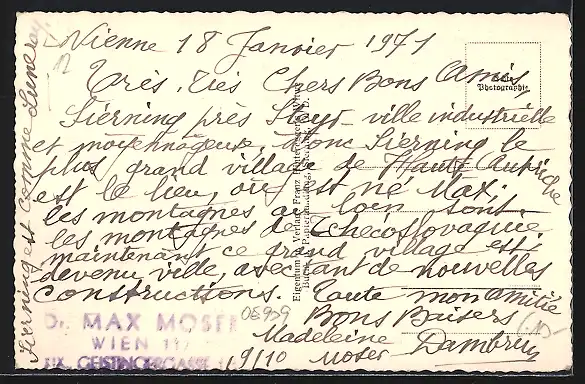 Vienne 18 Janvier 1971
Très, très Chers Bons Amis
Sierning près Steyr ville industrielle
et moyennageuse. Donc Sierning le
plus grand village de Haute Autriche
est le lieu, où est né Max;
les montagnes au loin sont
les montagnes de Tchecoslovaquie.
maintenant ce grand village est
devenu ville, avec tant de nouvelles
constructions. Toute mon amitié
Bons Baisers
Madeleine Moser Dambrun
Sierning est comme Luneray
Echte Photographie
Eigentum u. Verlag Franz
Buch- u. Papierhandlung
Dr. MAX MOSER
WIEN
XIX, GEISTINGERGASSE
19/10
OE959